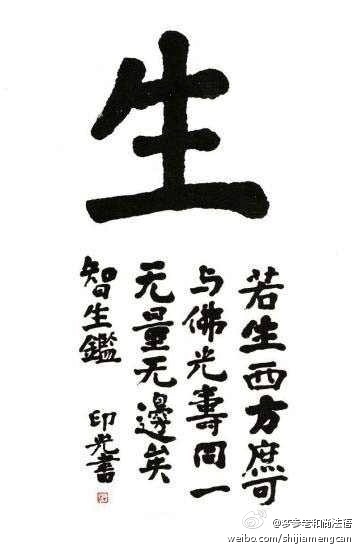 生
若生西方庶可
与佛光壽同一
无量无邊矣
智生鑑 印光書
@梦参老和尚法语
weibo.com/shijiamengcan